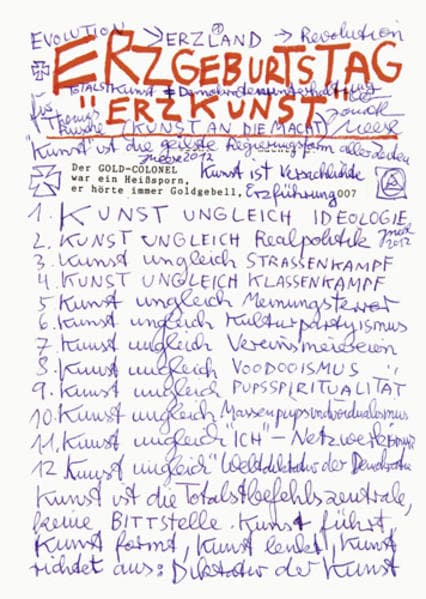 EVOLUTION → ERZLAND → Revolution
ERZGEBURTSTAG
TOTALSTKUNST ≠ Demokratenunterhaltung
"ERZKUNST"
für
(KUNST AN DIE MACHT) Meese
"Kunst" ist die geilste Regierungsform aller Zeiten
Meese 2012
Der GOLD-COLONEL
war ein Heißsporn,
er hörte immer Goldgebell,
Kunst ist Versachlichte
Erzführung 007
1. KUNST UNGLEICH IDEOLOGIE
2. KUNST UNGLEICH Realpolitik Meese 2012
3. Kunst ungleich STRASSENKAMPF
4. KUNST UNGLEICH KLASSENKAMPF
5. Kunst ungleich Meinungsterror
6. Kunst ungleich Kulturpartyismus
7 Kunst ungleich Vereinsmeiereien
8. Kunst ungleich VOODOOISMUS
9. Kunst ungleich PUPSSPIRITUALITÄT
10. Kunst ungleich Massenpupsindividualismus
11. Kunst ungleich "ICH" – Netzwerk
12 Kunst ungleich "Weltdiktatur der Demokratie
Kunst ist die Totalstbefehlszentrale,
keine BITTSTELLE. Kunst führt,
Kunst formt, Kunst lenkt, Kunst
richtet aus: Diktatur der Kunst